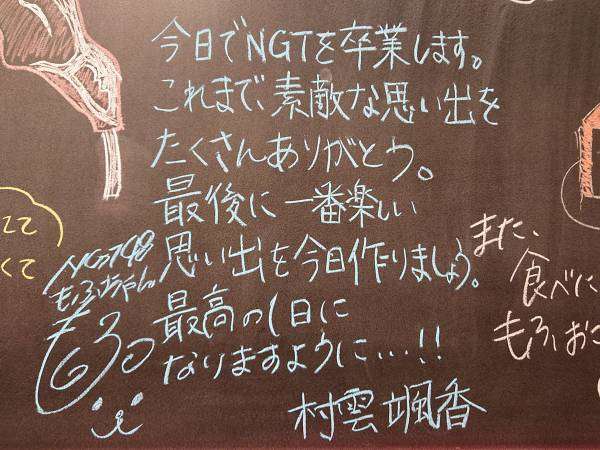 今日でNGTを卒業します。
これまで、素敵な思い出を
たくさんありがとう。
最後に一番楽しい
思い出を今日作りましょう。
最高の1日に
なりますように…!!
村雲颯香
NGT48
もふちゃん。
にて
くて
また、
食べに